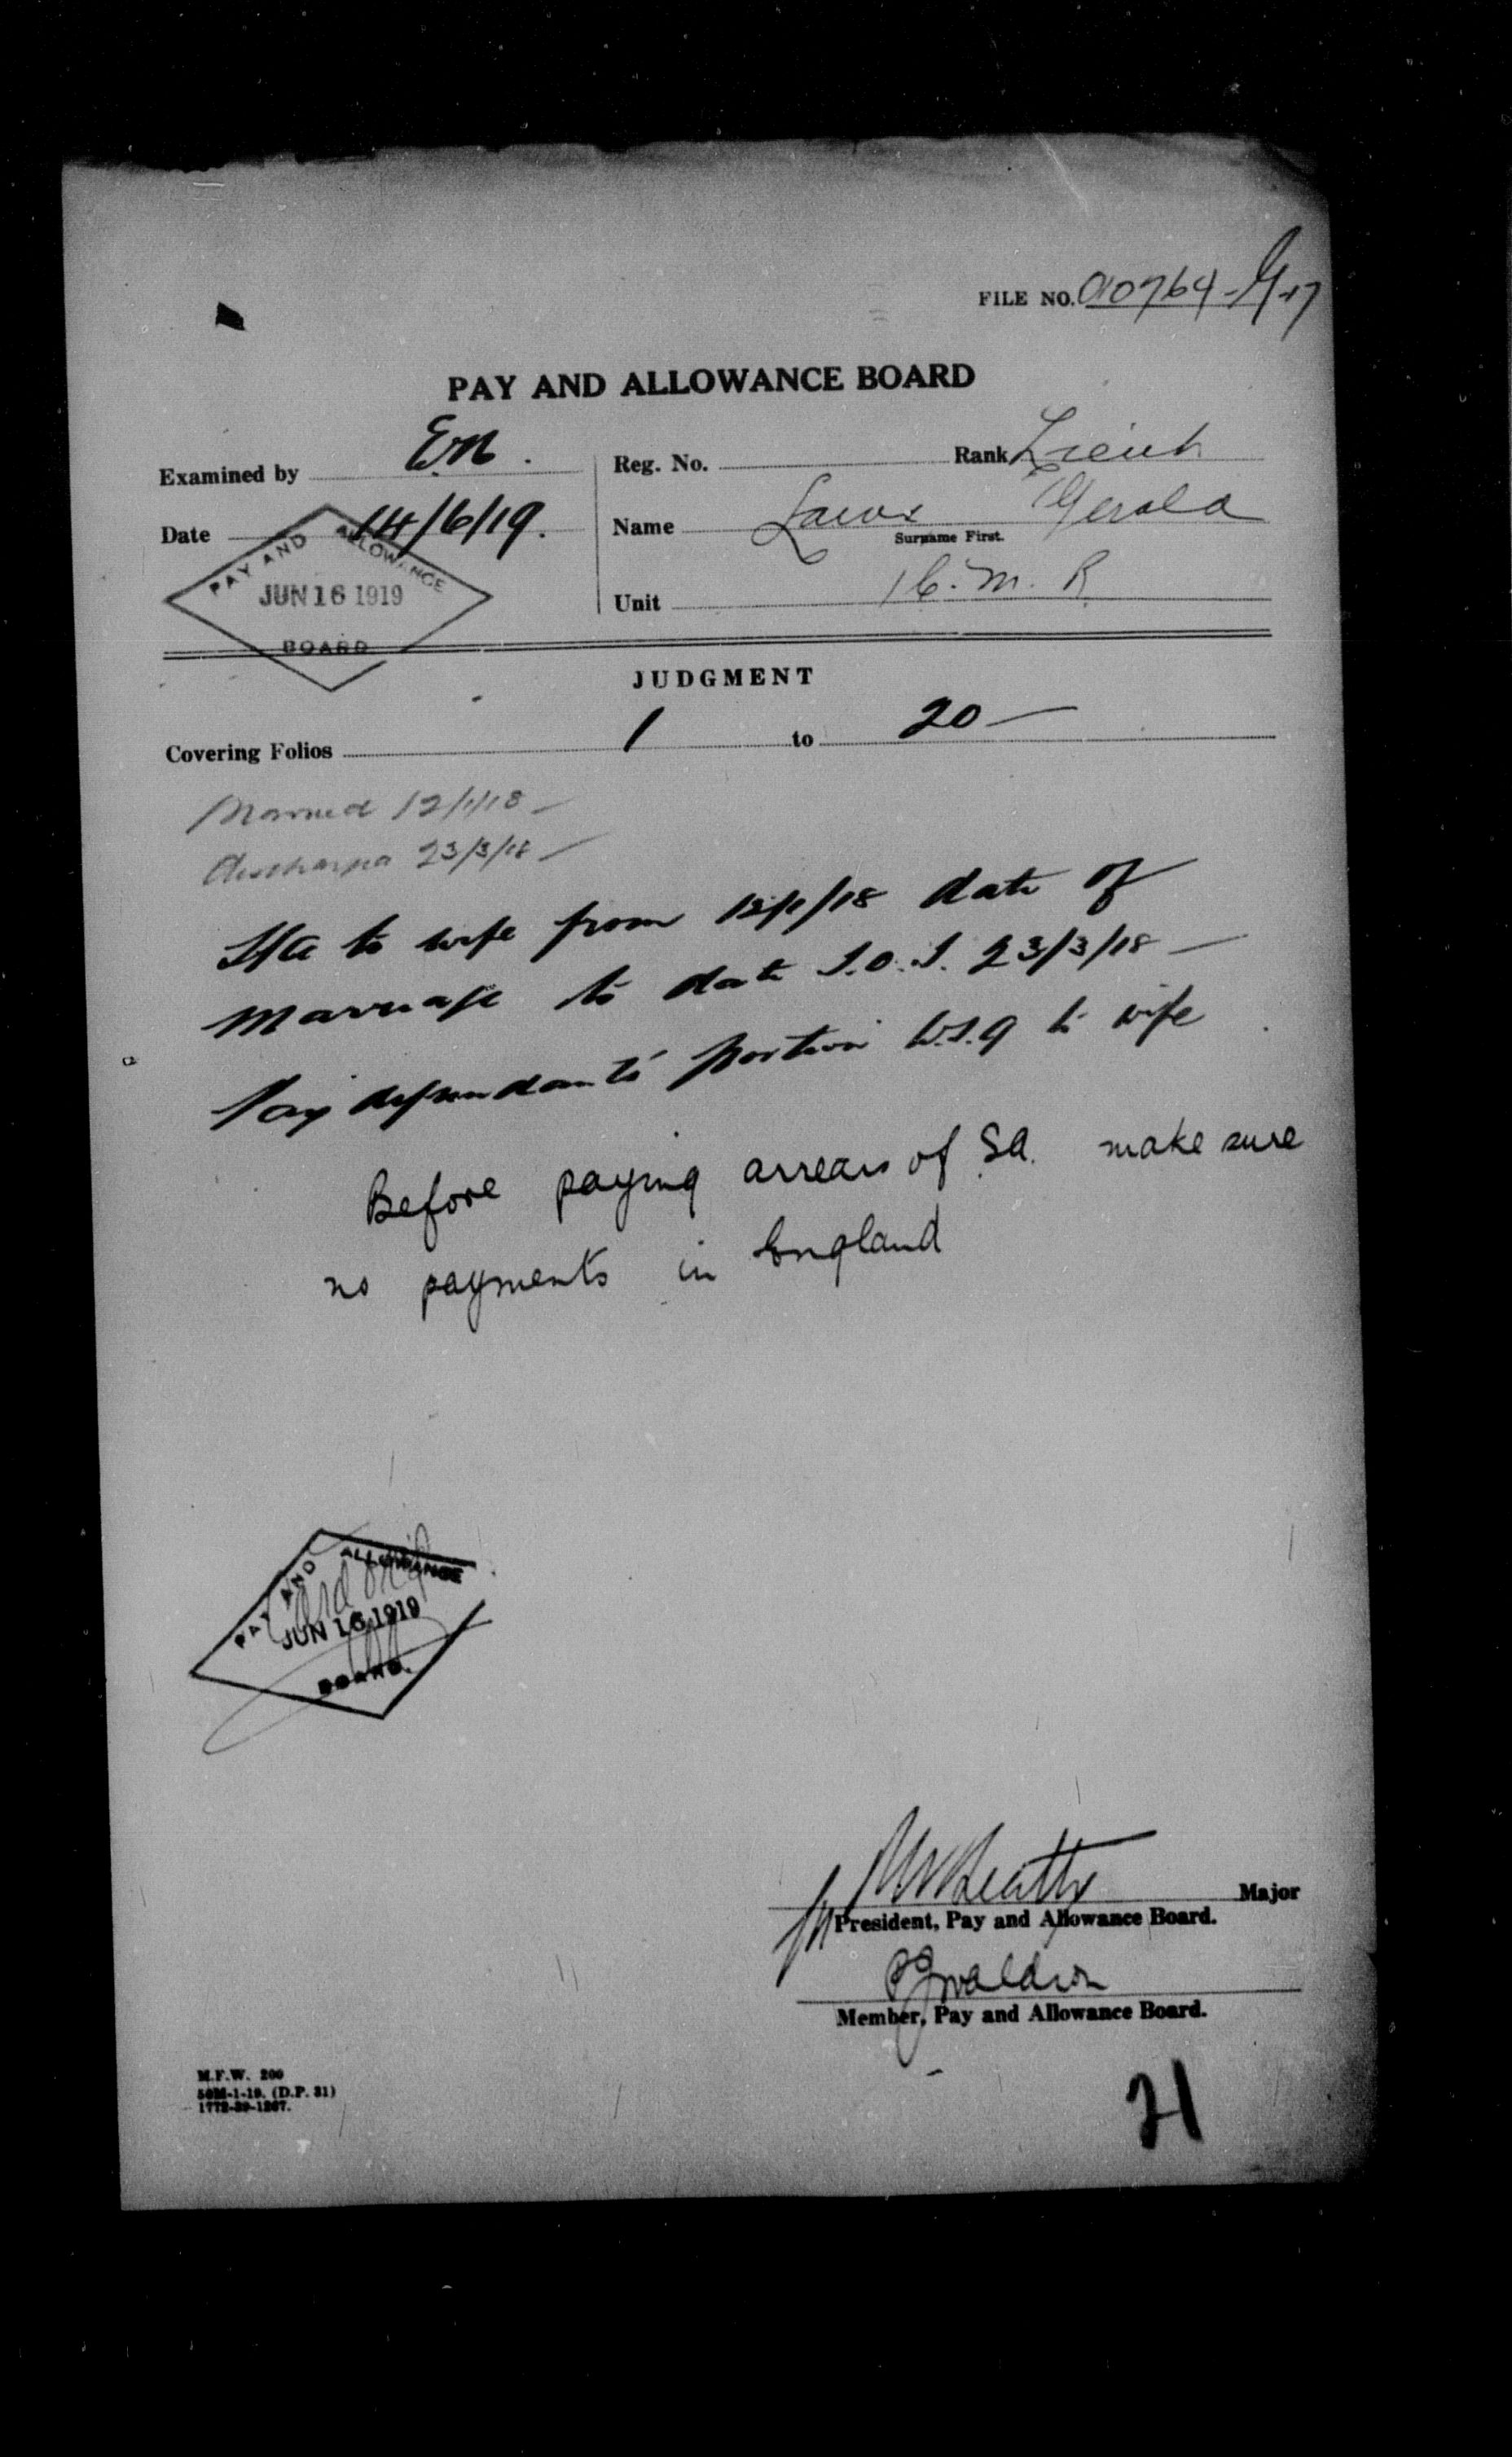 FILE NO.
PAY AND ALLOWANCE BOARD
Examined by E.M.
Reg. No. Rank Lieut
Date 14/6/19.
Name Laws Gerald
Surname First.
PAY AND ALLOWANCE
JUN 16 1919
BOARD
Unit 1 C. M. R.
JUDGMENT
Covering Folios 1 to 20 —
Married 12/1/18 —
23/3/18 —
to wife from 12/1/18 date of
marriage to date S.O.S. 23/3/18 —
Pay dependants' portion W.S.G to wife
Before paying arrears of S.A. make sure
no payments in England
PAY AND ALLOWANCE
JUN 16 1919
BOARD.
Major
President, Pay and Allowance Board.
Member, Pay and Allowance Board.
M.F.W. 200
50M-1-19. (D.P. 31)
1772-39-1267.
21